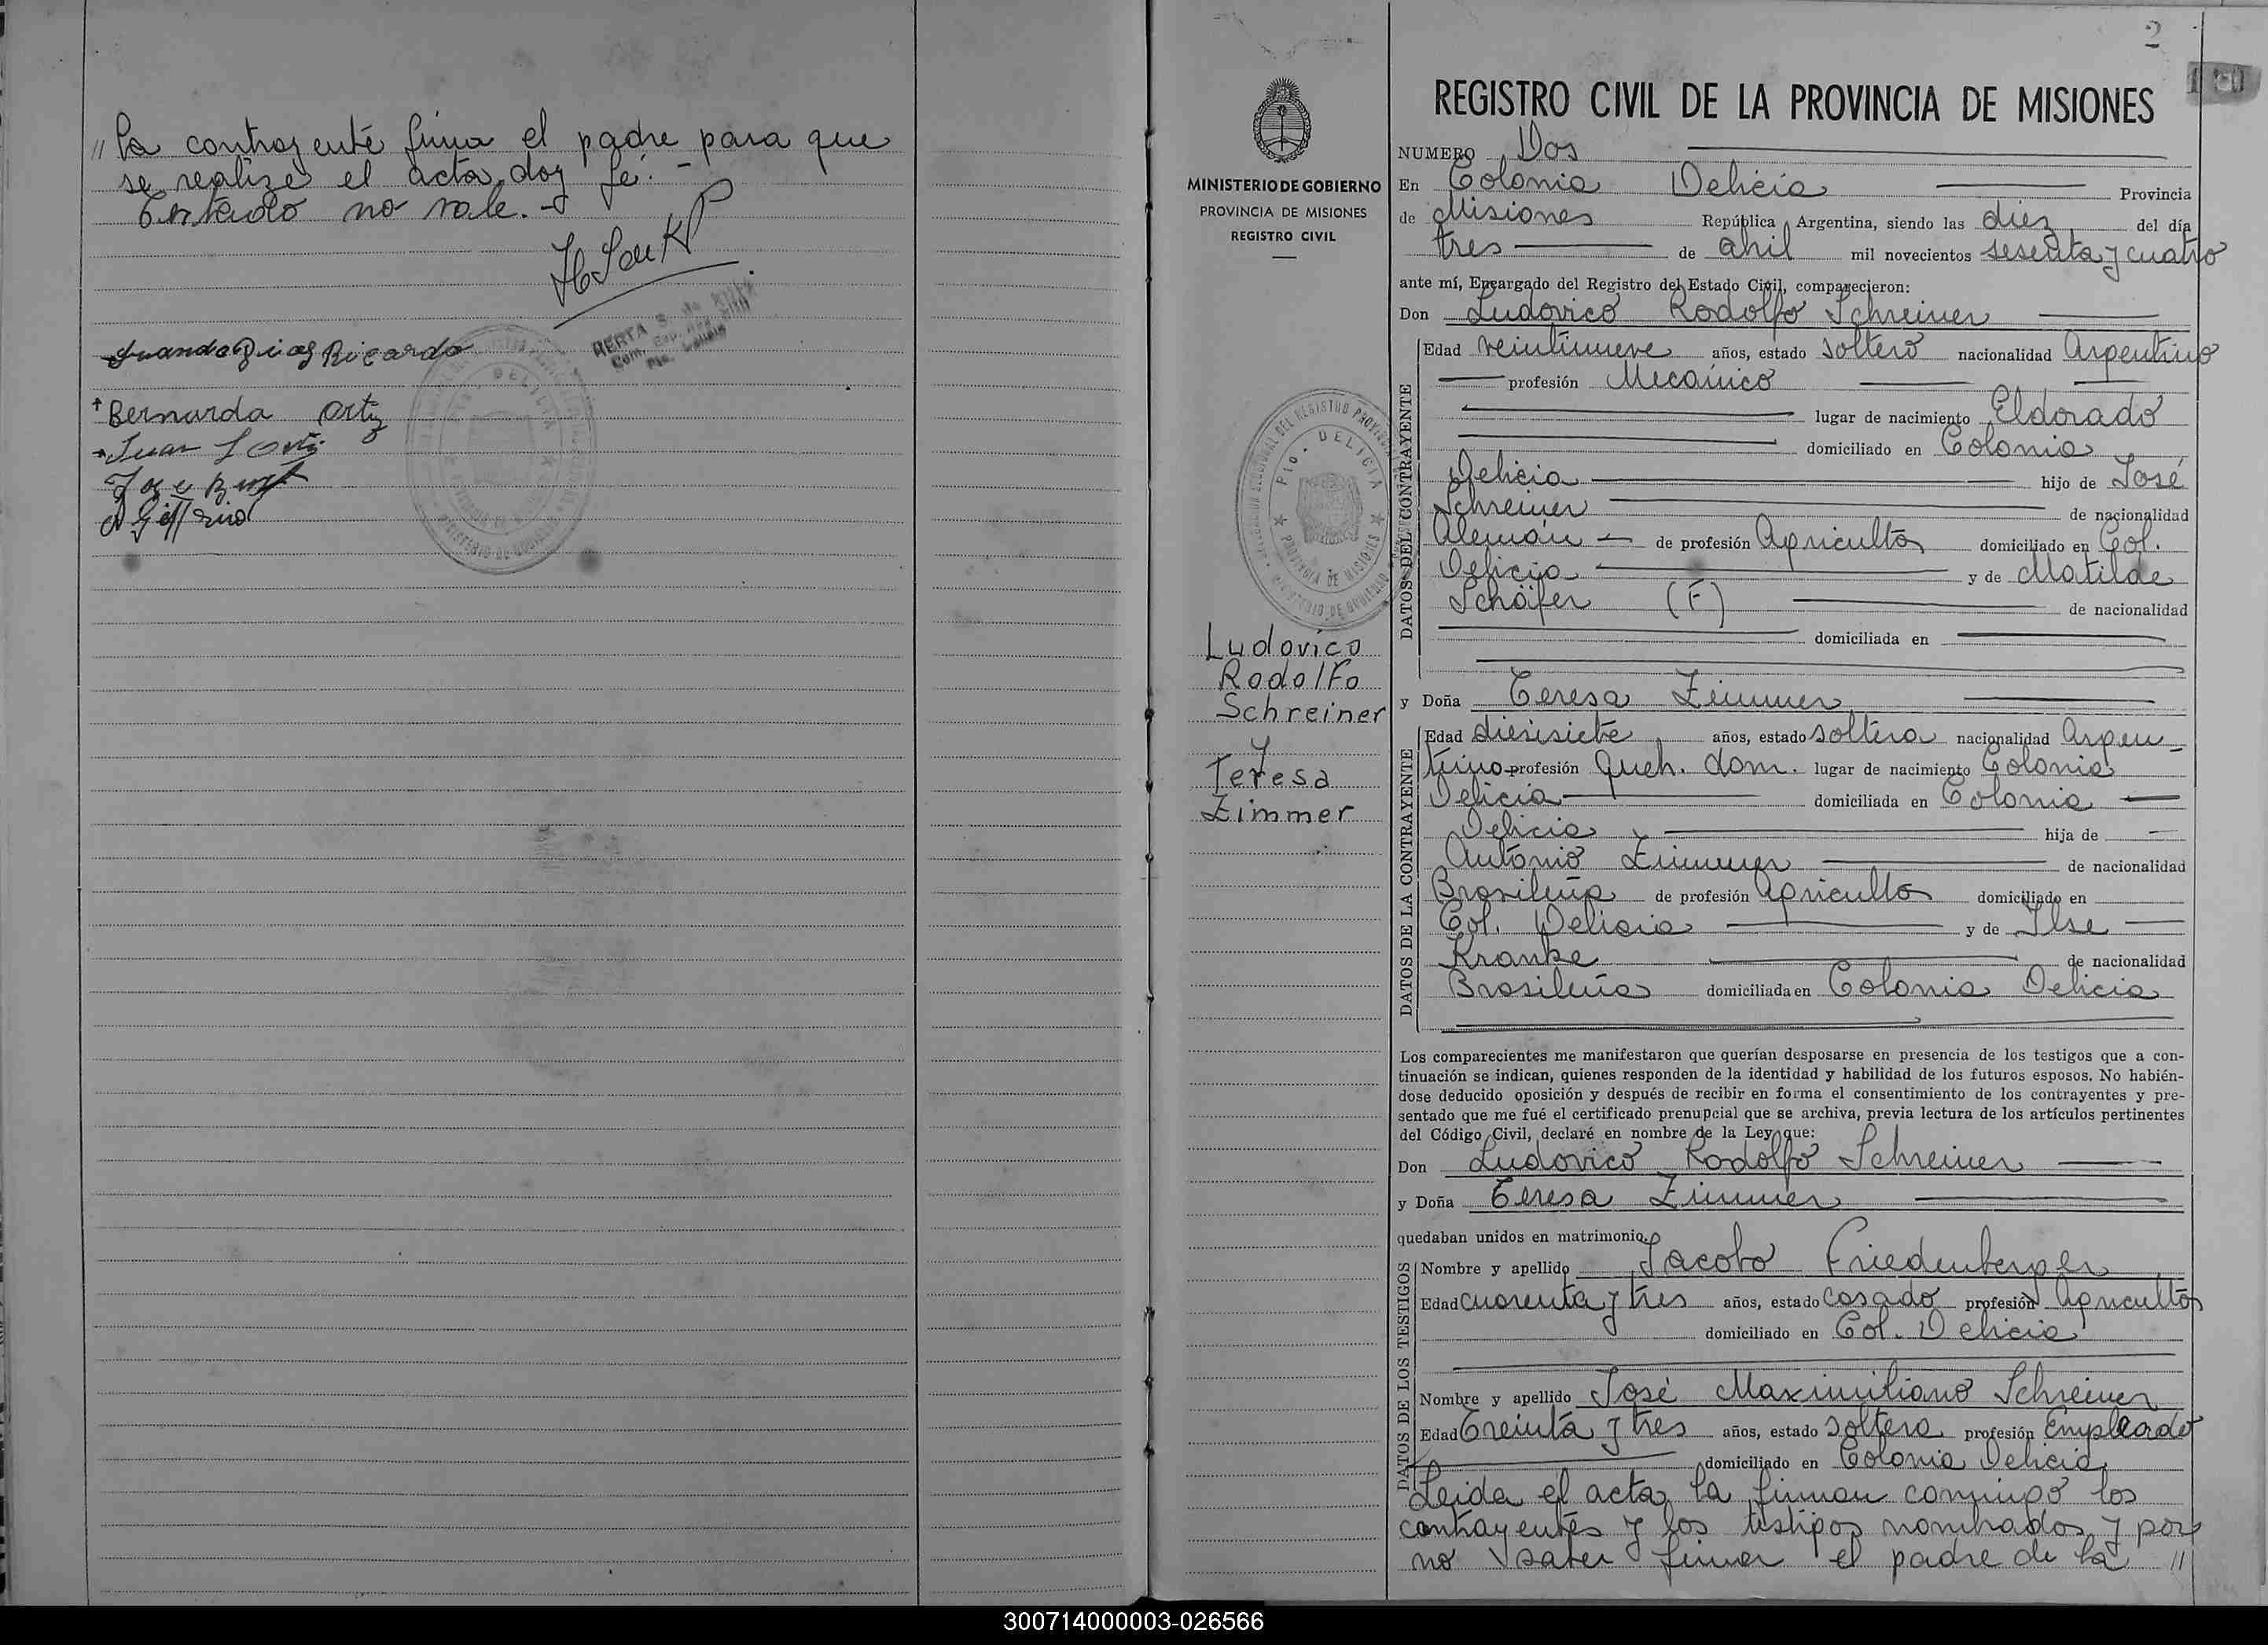 " la contrayente firma el padre para que
se realize el acta, doy fé. -
Testado no vale. -
BERTA S. de
Bernarda Ortiz
Juan Ortiz
2
REGISTRO CIVIL DE LA PROVINCIA DE MISIONES
MINISTERIO DE GOBIERNO
PROVINCIA DE MISIONES
REGISTRO CIVIL
NUMERO Dos
En Colonia Delicia Provincia
de Misiones República Argentina, siendo las diez del día
tres de abril mil novecientos sesenta y cuatro
ante mí, Encargado del Registro del Estado Civil, comparecieron:
Don Ludovico Rodolfo Schreiner
DATOS DEL CONTRAYENTE
Edad veintinueve años, estado soltero nacionalidad Argentino
profesión Mecánico
lugar de nacimiento Eldorado
domiciliado en Colonia
Delicia hijo de José
Schreiner de nacionalidad
Alemán - de profesión Agricultor domiciliado en Col.
Delicia y de Matilde
Schäfer (F) de nacionalidad
domiciliada en
PROVINCIA DE MISIONES
Pto. DELICIA
Ludovico
Rodolfo
Schreiner
y
Teresa
Zimmer
y Doña Teresa Zimmer
DATOS DE LA CONTRAYENTE
Edad diesisiete años, estado soltera nacionalidad Argen-
tino profesión Queh. dom. lugar de nacimiento Colonia
Delicia domiciliada en Colonia
Delicia hija de
Antonio Zimmer de nacionalidad
Brasileña de profesión Agricultor domiciliado en
Col. Delicia y de Ilse
Kranke de nacionalidad
Brasileña domiciliada en Colonia Delicia
Los comparecientes me manifestaron que querían desposarse en presencia de los testigos que a con-
tinuación se indican, quienes responden de la identidad y habilidad de los futuros esposos. No habién-
dose deducido oposición y después de recibir en forma el consentimiento de los contrayentes y pre-
sentado que me fué el certificado prenupcial que se archiva, previa lectura de los artículos pertinentes
del Código Civil, declaré en nombre de la Ley que:
Don Ludovico Rodolfo Schreiner
y Doña Teresa Zimmer
quedaban unidos en matrimonio.
DATOS DE LOS TESTIGOS
Nombre y apellido Jacobo Friedenberger
Edad cuarenta y tres años, estado casado profesión Agricultor
domiciliado en Col. Delicia
Nombre y apellido José Maximiliano Schreiner
Edad Treinta y tres años, estado soltero profesión Empleado
domiciliado en Colonia Delicia
Leida el acta, la firman conmigo los
contrayentes y los testigos nombrados, y por
no saber firmar el padre de la "
300714000003-026566